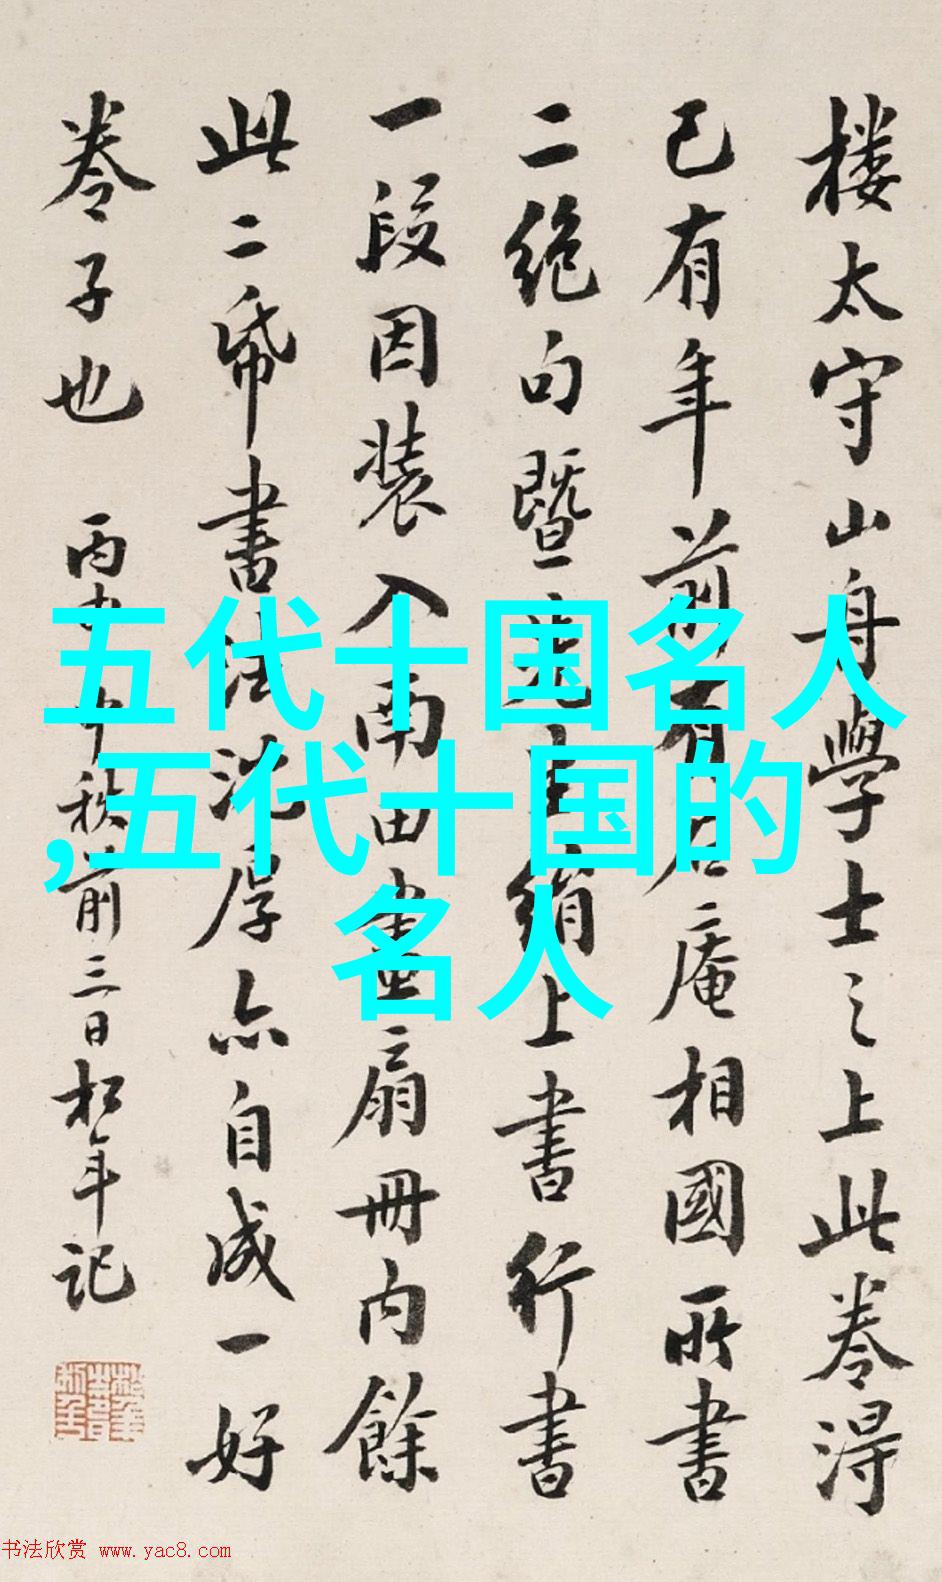 楼太守山舟學士之上此卷得
已有年前有石庵相國所書
二絕句暨先生絹上書行書
一段因裝入南田畫扇冊内餘
此二帋書法沈厚亦自成一好
卷子也
丙申中秋前三日松年記
五代十国名人
,五代十国的
名人
书法欣赏 www.yac8.com